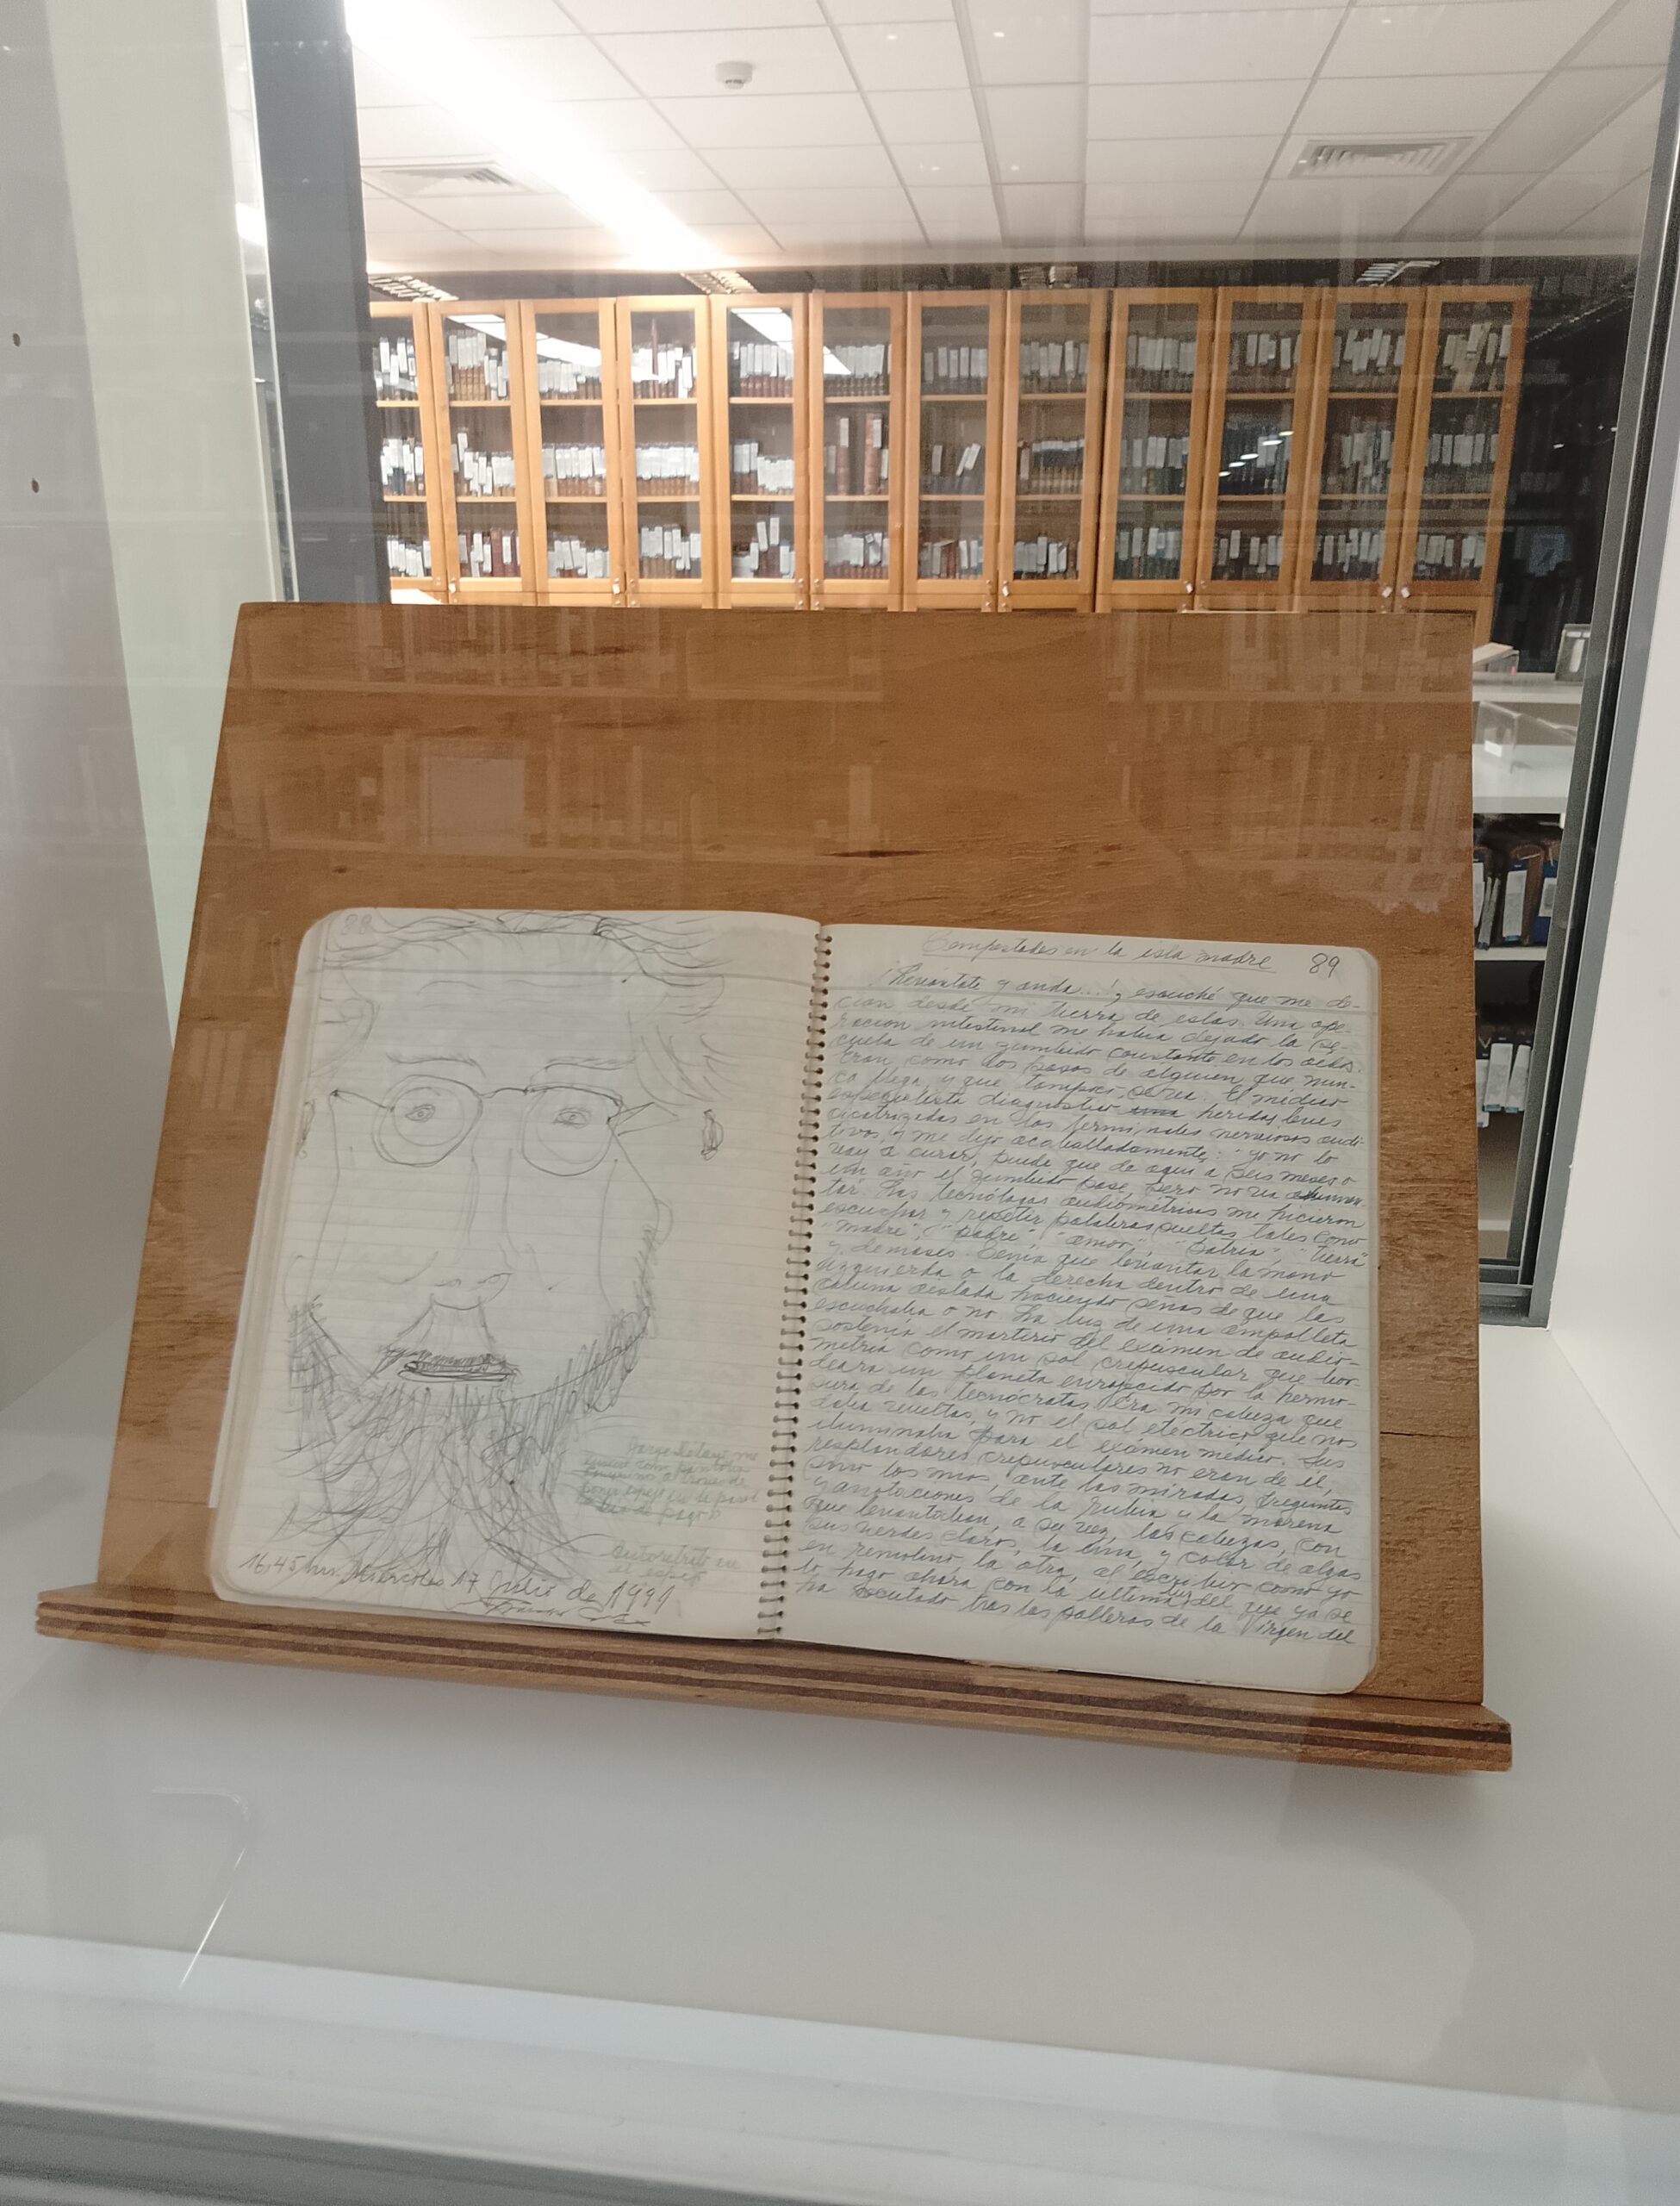 88
Jorge
autorretrato en
el espejo
16,45 hrs. Miércoles 17 Julio de 1991
Tempestades en la isla madre 89
¡Levántate y anda...!, escuché que me de-
cían desde mi tierra de islas. Una ope-
ración intestinal me había dejado la se-
cuela de un zumbido constante en los oídos.
Eran como los pasos de alguien que nun-
ca llega, y que tampoco cesa. El médico
especialista diagnosticó una heridas leves
cicatrizadas en los terminales nerviosos audi-
tivos, y me dijo acaballadamente: "yo no lo
voy a curar, puede que de aquí a seis meses o
un año el zumbido pase, pero no va a aumen-
tar. Las tecnólogas audiométricas me hicieron
escuchar y repetir palabras sueltas tales como
"madre", "padre", "amor", "patria", "tierra"
y demases. Tenía que levantar la mano
izquierda o la derecha dentro de una
cabina aislada haciendo señas de que las
escuchaba o no. La luz de una ampolleta
sostenía el martirio del exámen de audio-
metría como un sol crepuscular que bor-
deara un planeta enrojecido por la hermo-
sura de las tecnócratas. Era mi cabeza que
daba vueltas, y no el sol eléctrico que nos
iluminaba para el exámen médico. Sus
resplandores crepusculares no eran de él,
sino los míos, ante las miradas, preguntas
y anotaciones de la rubia y la morena
que levantaban, a su vez, las cabezas, con
sus verdes claros, la una, y color de algas
en remolino, la otra, al escribir como yo
lo hago ahora con la última luz del que ya se
ha ocultado tras las palleras de la Virgen del